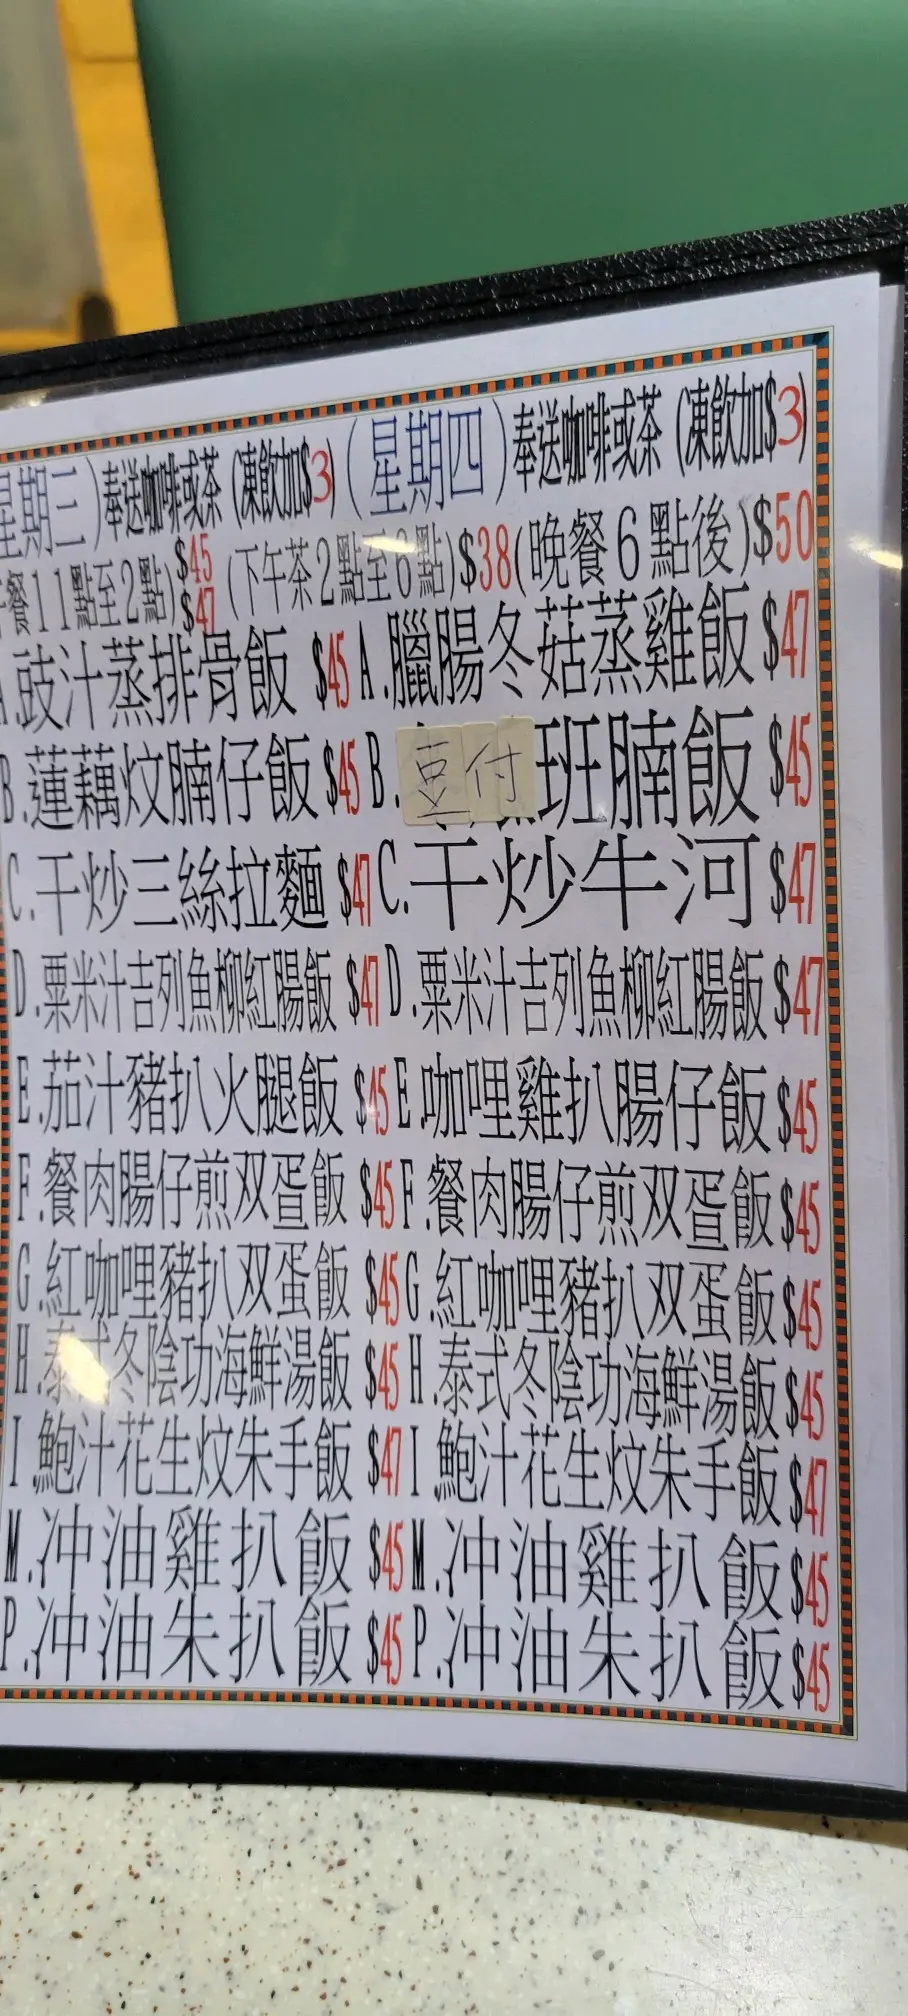 星期三)奉送咖啡或茶(凍飲加$3)(星期四)奉送咖啡或茶(凍飲加$3)
餐11點至2點)$45 $47(下午茶2點至6點)$38(晚餐6點後)$50
A.豉汁蒸排骨飯 $45 A.臘腸冬菇蒸雞飯 $47
B.蓮藕炆腩仔飯 $45 B.豆付班腩飯 $45
C.干炒三絲拉麵 $47 C.干炒牛河 $47
D.粟米汁吉列魚柳紅腸飯 $47 D.粟米汁吉列魚柳紅腸飯 $47
E.茄汁豬扒火腿飯 $45 E.咖哩雞扒腸仔飯 $45
F.餐肉腸仔煎双蛋飯 $45 F.餐肉腸仔煎双蛋飯 $45
G.紅咖哩豬扒双蛋飯 $45 G.紅咖哩豬扒双蛋飯 $45
H.泰式冬陰功海鮮湯飯 $45 H.泰式冬陰功海鮮湯飯 $45
I.鮑汁花生炆朱手飯 $47 I.鮑汁花生炆朱手飯 $47
M.冲油雞扒飯 $45 M.冲油雞扒飯 $45
P.冲油朱扒飯 $45 P.冲油朱扒飯 $45